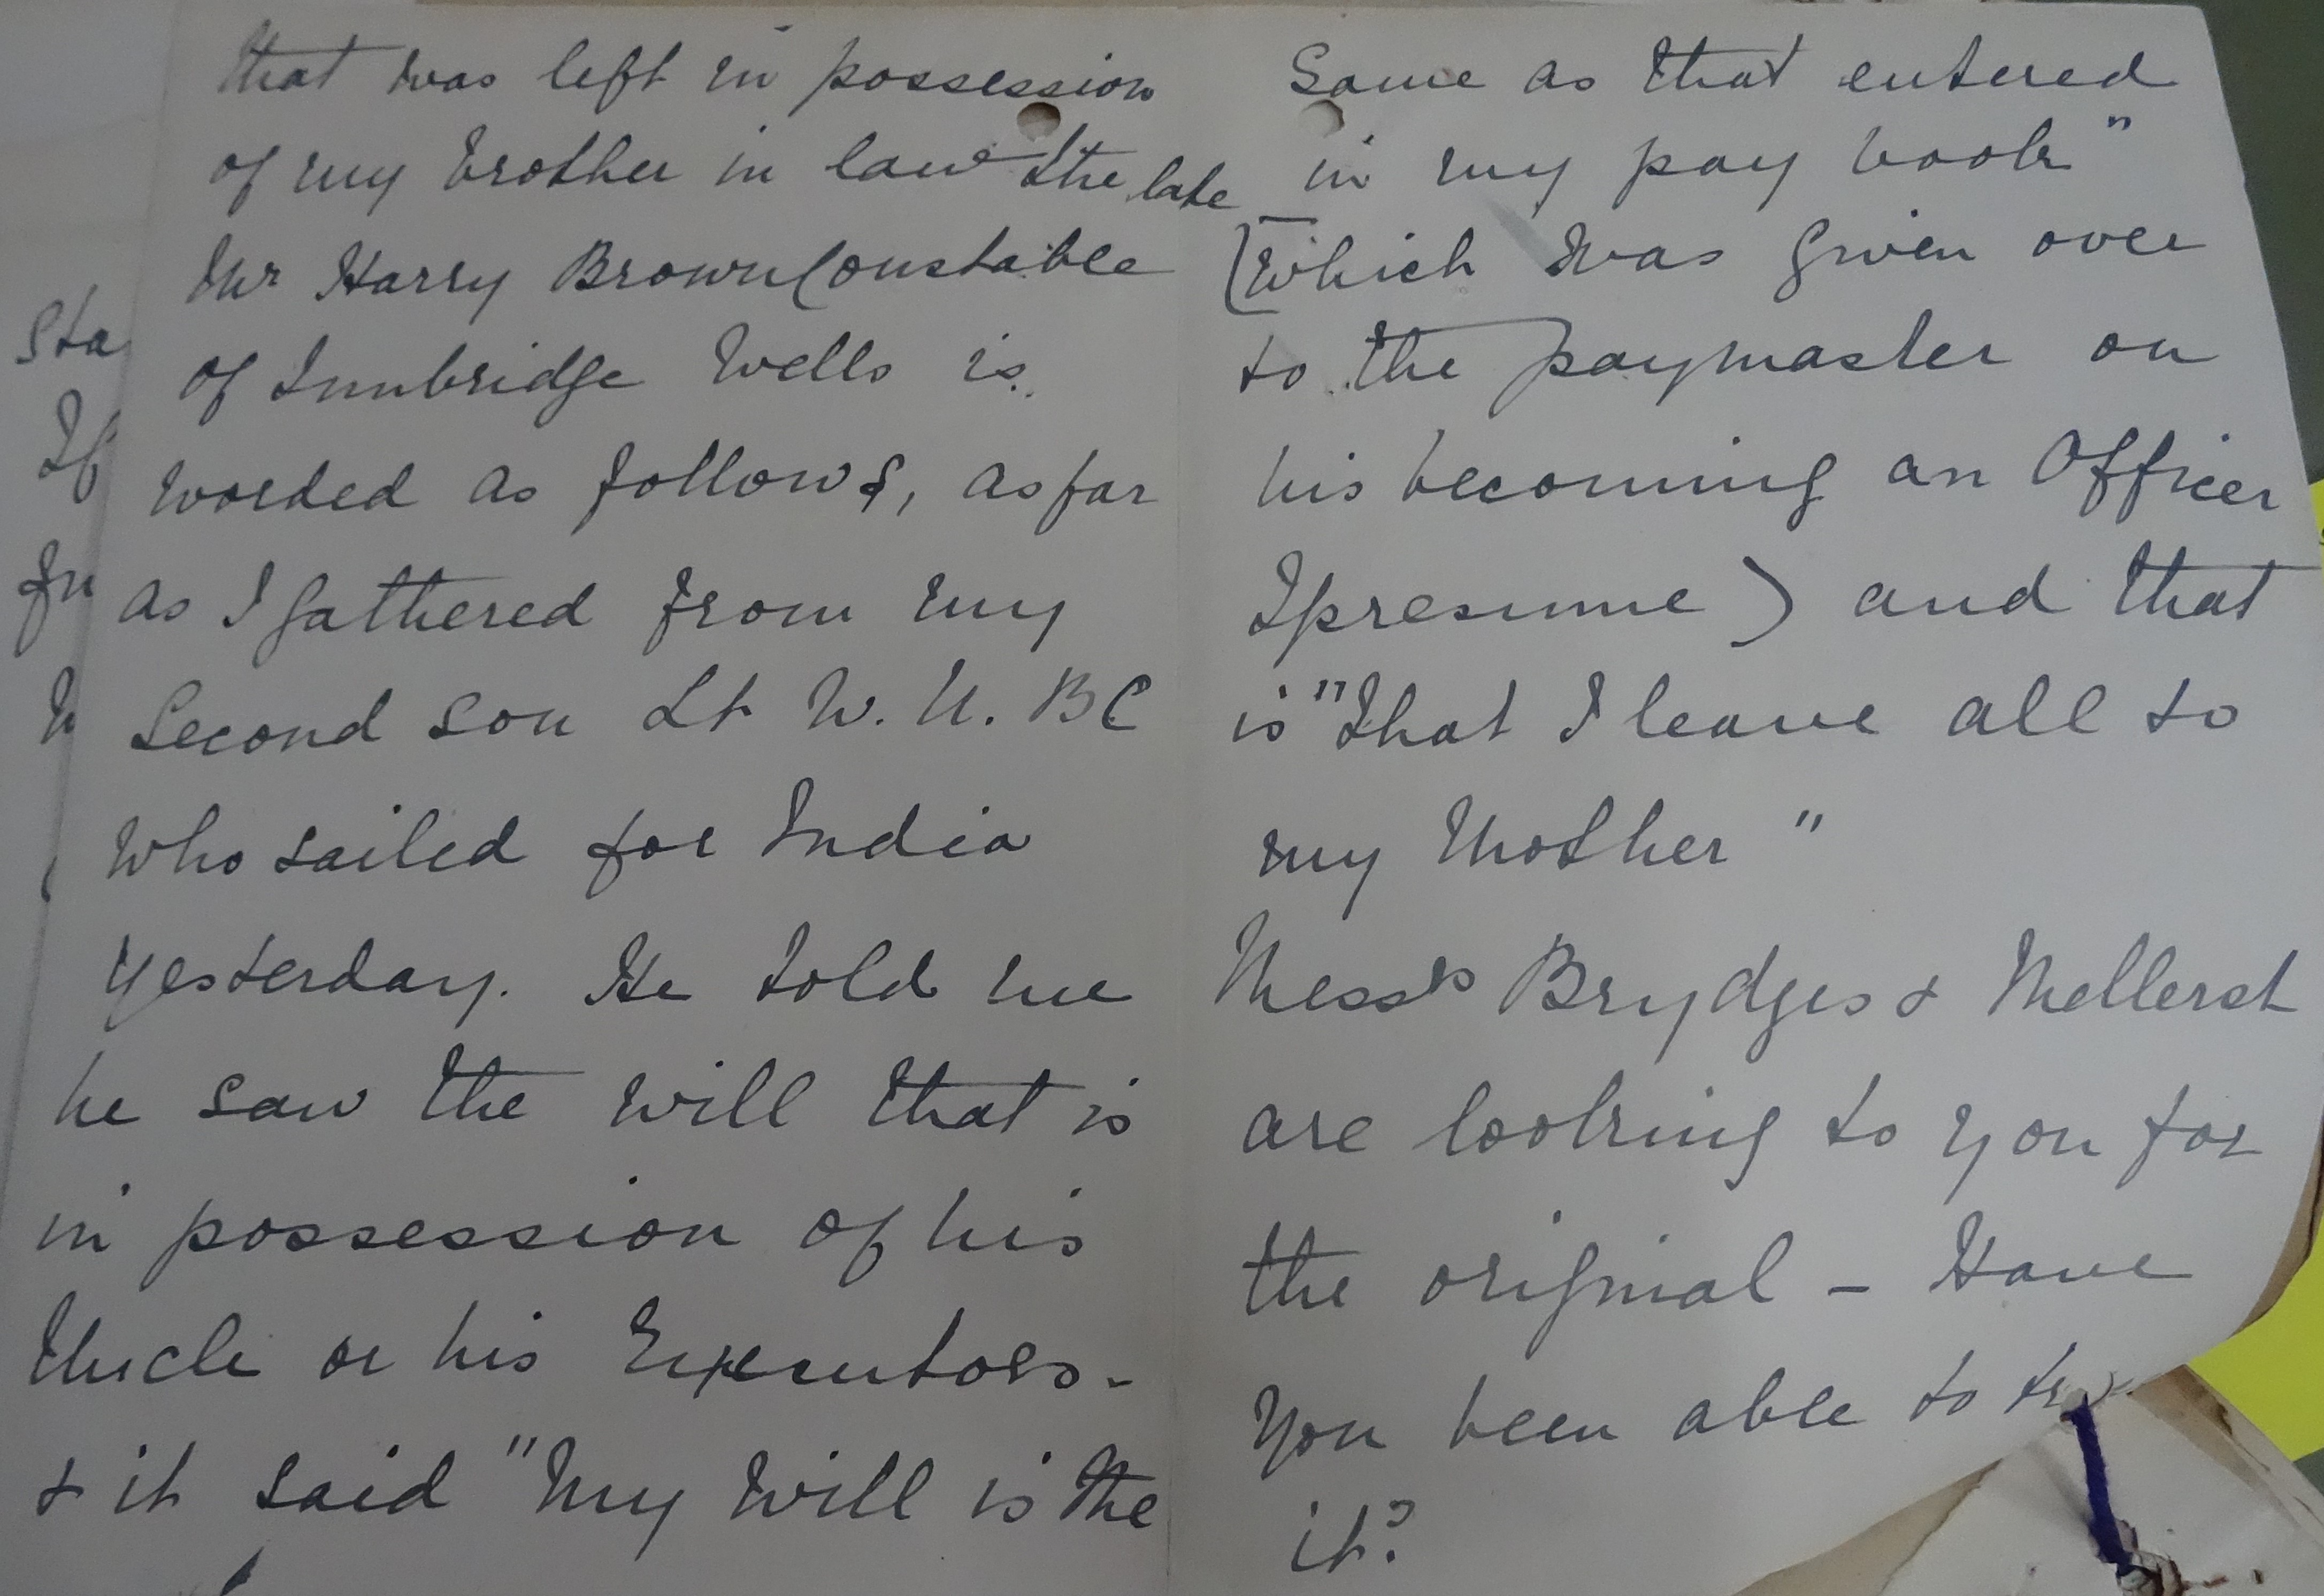 that was left in possession
of my brother in law the late
Mr Harry Brown Constable
of Tunbridge Wells is
worded as follows, as far
as I gathered from my
Second son Lt W. U. BC
who sailed for India
yesterday. He told me
he saw the will that is
in possession of his
Uncle or his Executors -
& it said "My will is the
Same as that entered
in my pay book"
(which was given over
to the paymaster on
his becoming an Officer
I presume) and that
is "that I leave all to
my Mother"
Messrs Brydges & Mellersh
are looking to you for
the original - Have
you been able to
it?
Sta
If